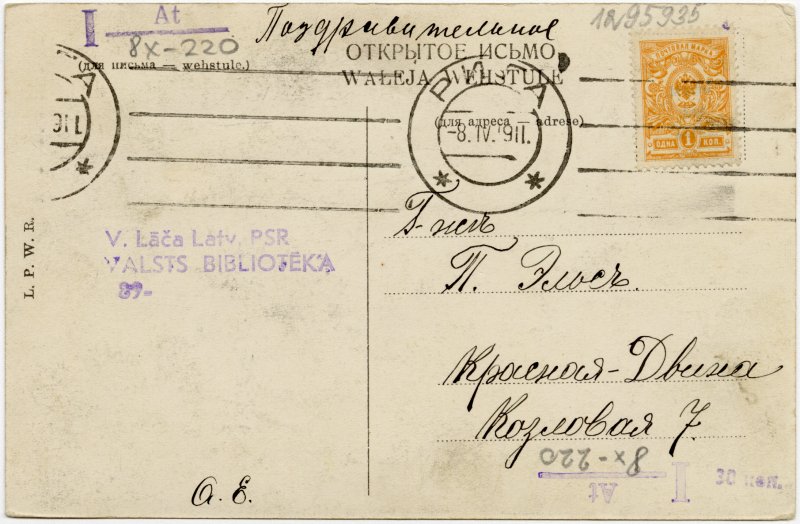 I At
8X-220
Поздравительное
1295935
ОТКРЫТОЕ ИСЬМО
WALEJA WEHSTULE
(для письма — wehstule.)
(для адреса — adrese)
РИГА
-8.IV.911.
ПОЧТОВАЯ МАРКА
ОДНА 1 КОП.
911
L. P. W. R.
V. Lāča Latv. PSR
VALSTS BIBLIOTĒKA
89-
Г-жѣ
П. Элосъ.
Красная-Двина
Козловая 7
А. Е.
8X-220
I At
30 коп.